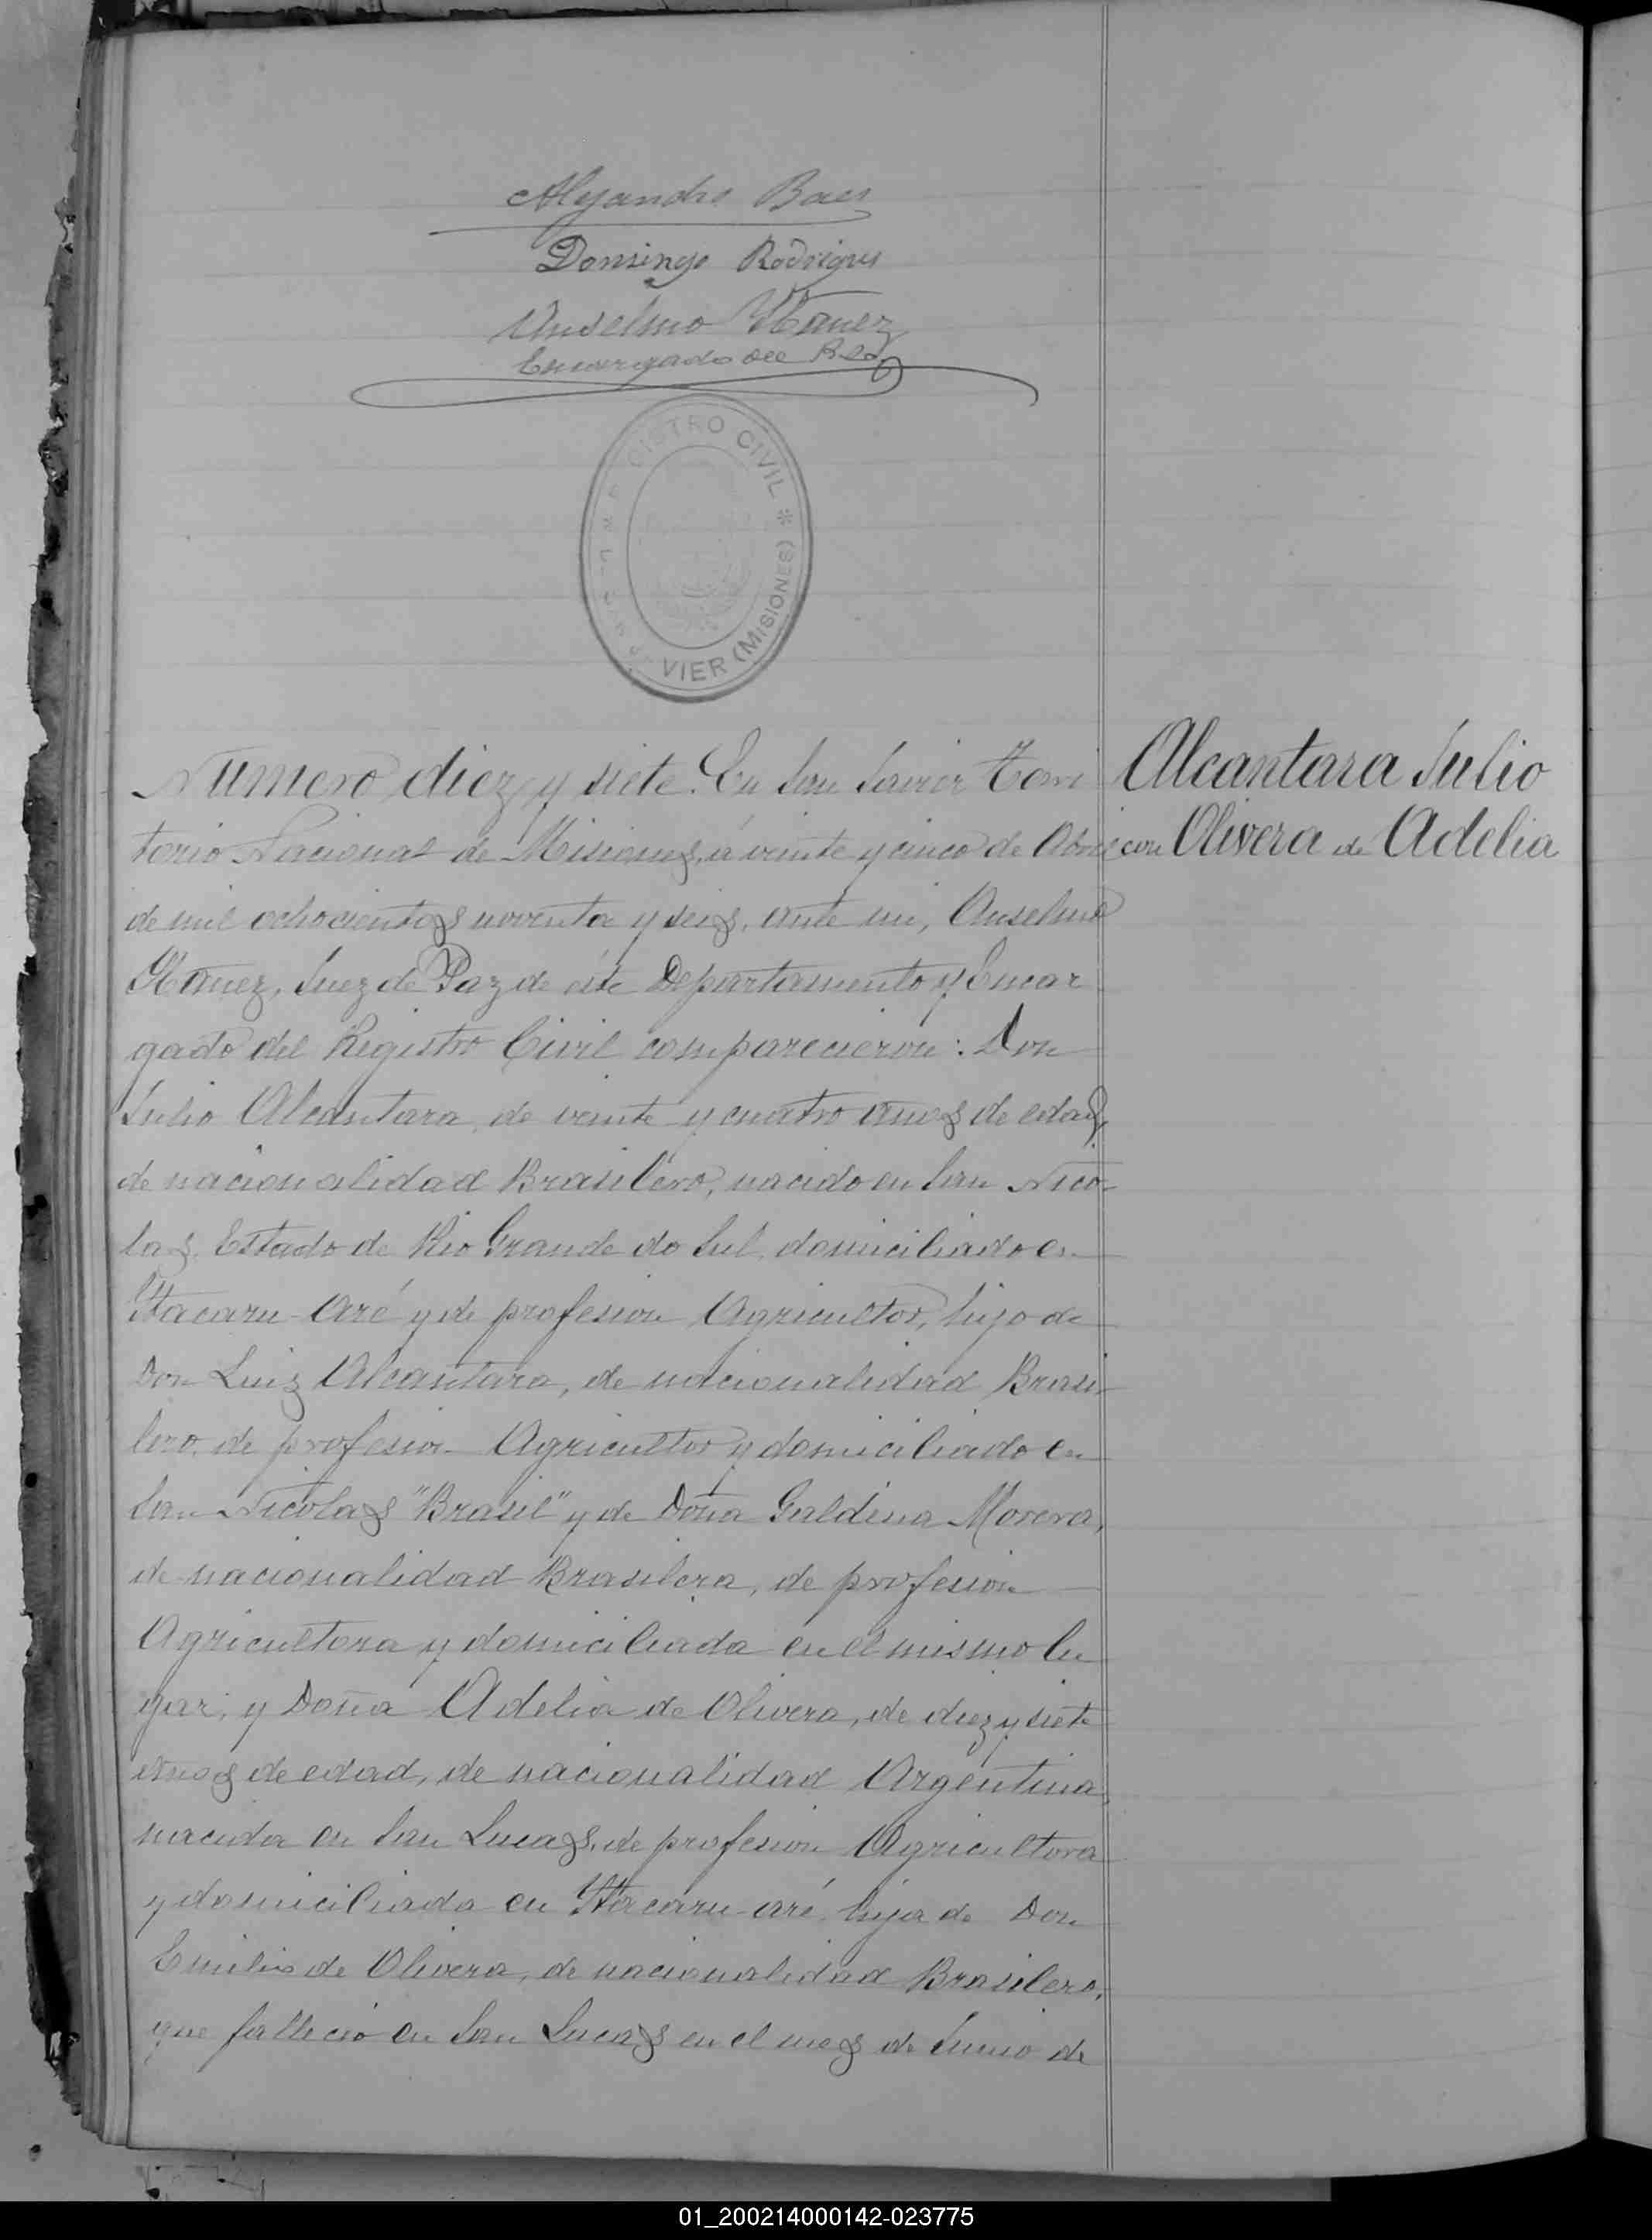 Alejandro Baes
Domingo Rodrigues
Anselmo Ybañez
Encargado del Reg
GISTRO CIVIL * VIER (MISIONES)
Numero diez y siete. En San Javier Terri
torio Nacional de Misiones, á veinte y cinco de Abril
de mil ochocientos noventa y seis, ante mi, Anselmo
Ybañez, Juez de Paz de éste Departamento y Encar
gado del Registro Civil comparecieron: Don
Julio Alcantara, de veinte y cuatro años de edad,
de nacionalidad Brasilero, nacido en San Nico-
las, Estado de Rio Grande do Sul, domiciliado en
Ytacaru-aré y de profesion Agricultor, hijo de
Don Luiz Alcantara, de nacionalidad Brasi-
lero, de profesion Agricultor y domiciliado en
San Nicolas "Brasil" y de Doña Galdina Morera,
de nacionalidad Brasilera, de profesion
Agricultora y domiciliada en el mismo lu
gar; y Doña Adelia de Olivera, de diez y siete
años de edad, de nacionalidad Argentina,
nacida en San Lucas, de profesion Agricultora
y domiciliada en Ytacaru-aré, hija de Don
Emilio de Olivera, de nacionalidad Brasilero,
que falleció en San Lucas en el mes de Junio de
Alcantara Julio
con Olivera de Adelia
01_200214000142-023775